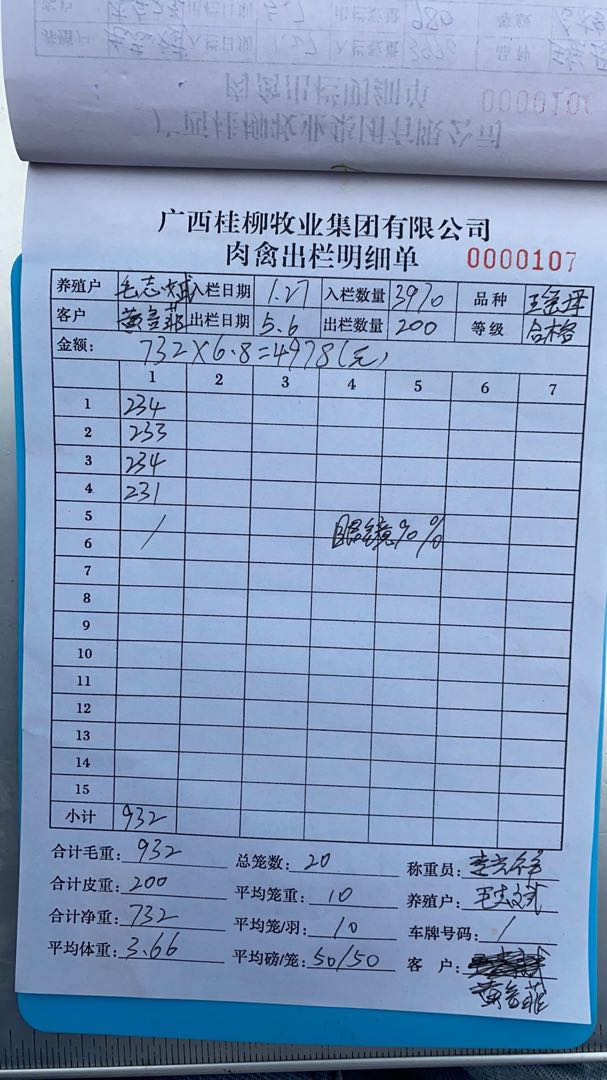 广西桂柳牧业集团有限公司
肉禽出栏明细单 0000107
养殖户 毛志斌 入栏日期 1.27 入栏数量 3970 品种
客户 黄 菲 出栏日期 5.6 出栏数量 200 等级 合格
金额: 732×6.8=4978(元)
1 2 3 4 5 6 7
1 234
2 233
3 234
4 231
5
6 / 眼镜90%
7
8
9
10
11
12
13
14
15
小计 932
合计毛重: 932 总笼数: 20 称重员:
合计皮重: 200 平均笼重: 10 养殖户: 毛志斌
合计净重: 732 平均笼/羽: 10 车牌号码: /
平均体重: 3.66 平均磅/笼: 50/50 客 户:
黄 菲